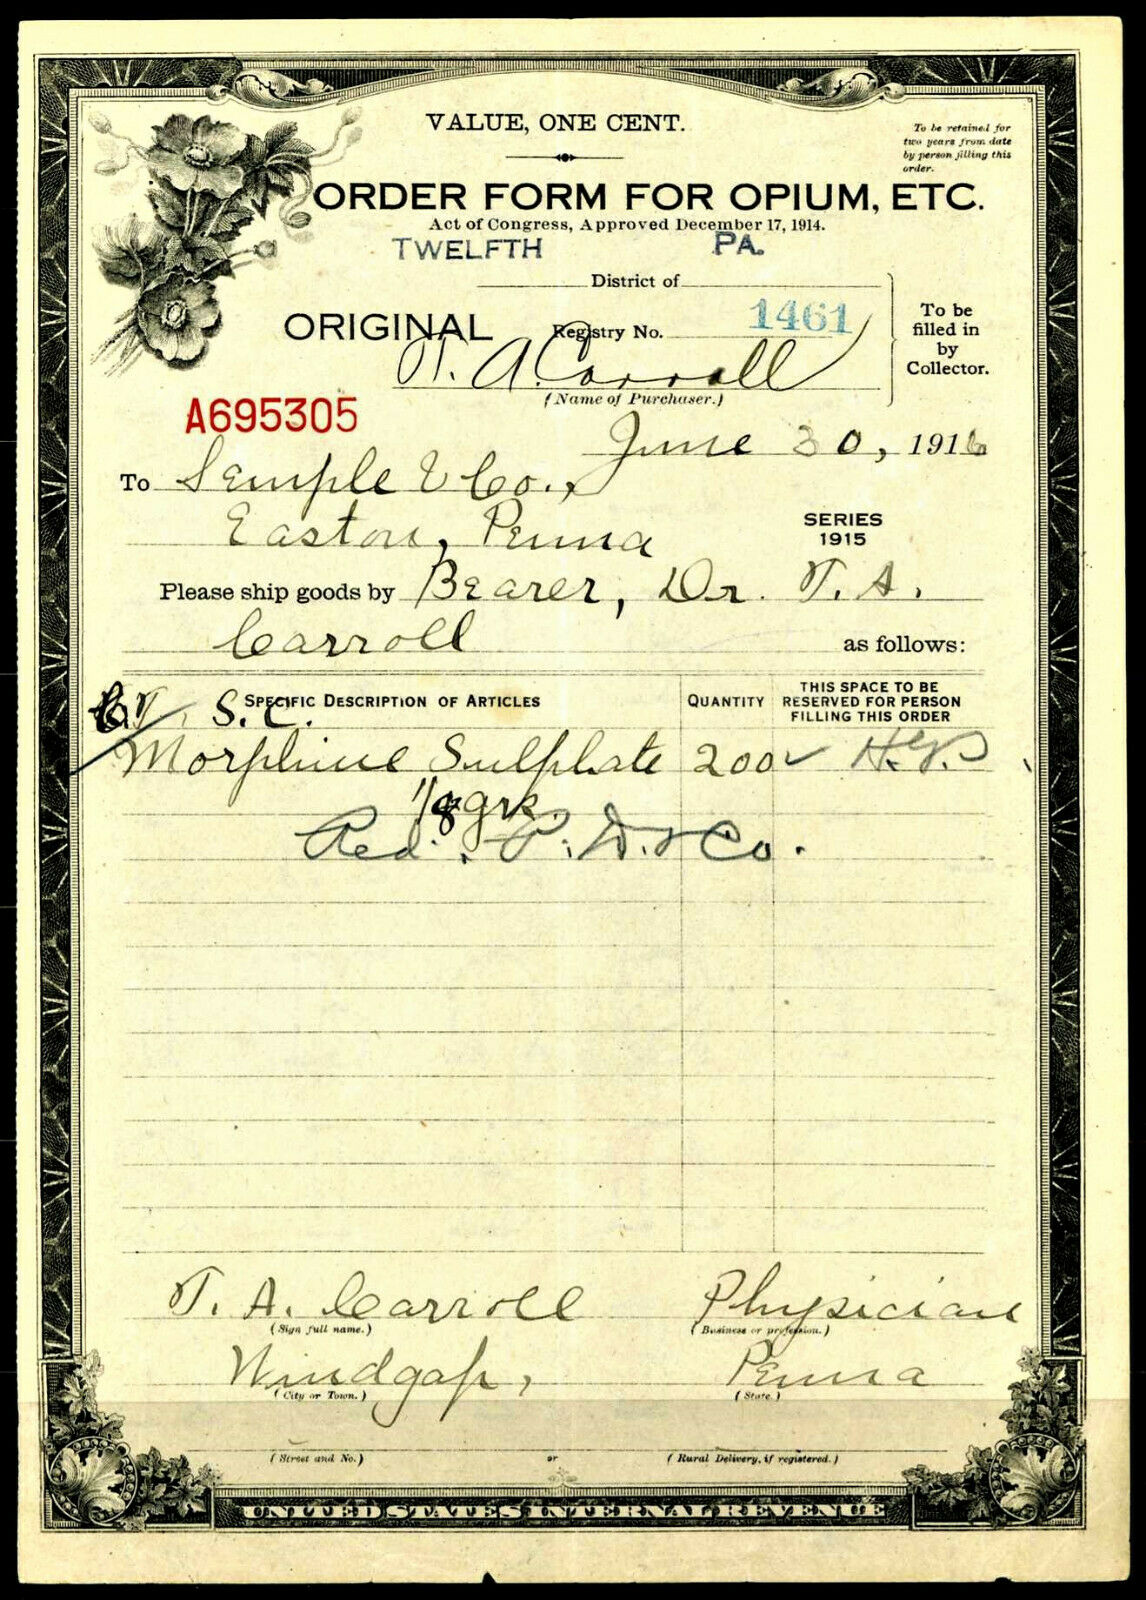 VALUE, ONE CENT.
To be retained for
two years from date
by person filling this
order.
ORDER FORM FOR OPIUM, ETC.
Act of Congress, Approved December 17, 1914.
TWELFTH PA.
District of
ORIGINAL Registry No. 1461
To be
filled in
by
Collector.
T. A. Carroll
(Name of Purchaser.)
A695305
June 30, 1916
To Semple & Co.,
Easton, Penna
SERIES
1915
Please ship goods by Bearer, Dr. T. A.
Carroll as follows:
SPECIFIC DESCRIPTION OF ARTICLES QUANTITY THIS SPACE TO BE
RESERVED FOR PERSON
FILLING THIS ORDER
S. C.
Morphine Sulphate 200
1/8 grs.
Red. P. D. & Co.
T. A. Carroll Physician
(Sign full name.) (Business or profession.)
Windgap, Penna
(City or Town.) (State.)
(Street and No.) or (Rural Delivery, if registered.)
UNITED STATES INTERNAL REVENUE